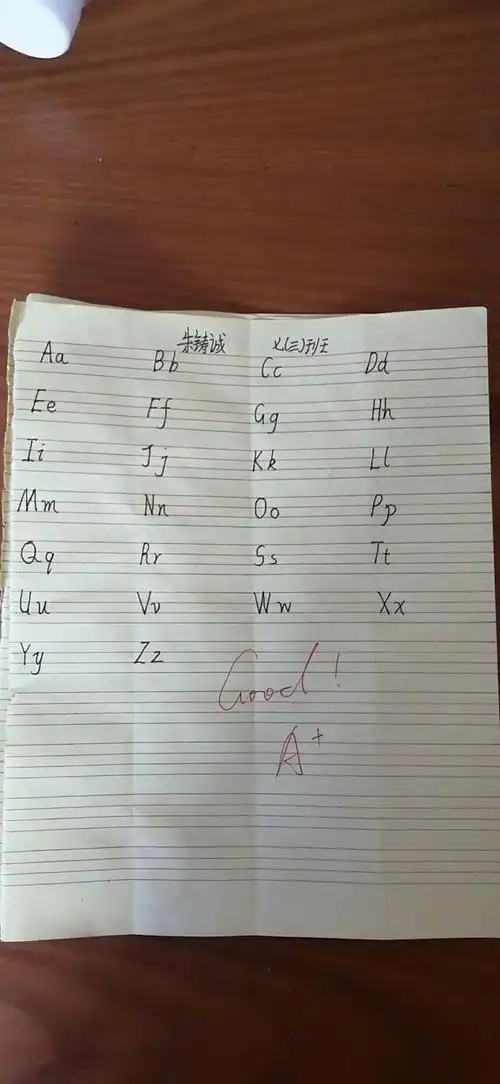 朱铸诚 七(三)班
Aa Bb Cc Dd
Ee Ff Gg Hh
Ii Jj Kk Ll
Mm Nn Oo Pp
Qq Rr Ss Tt
Uu Vv Ww Xx
Yy Zz
Good!
A+